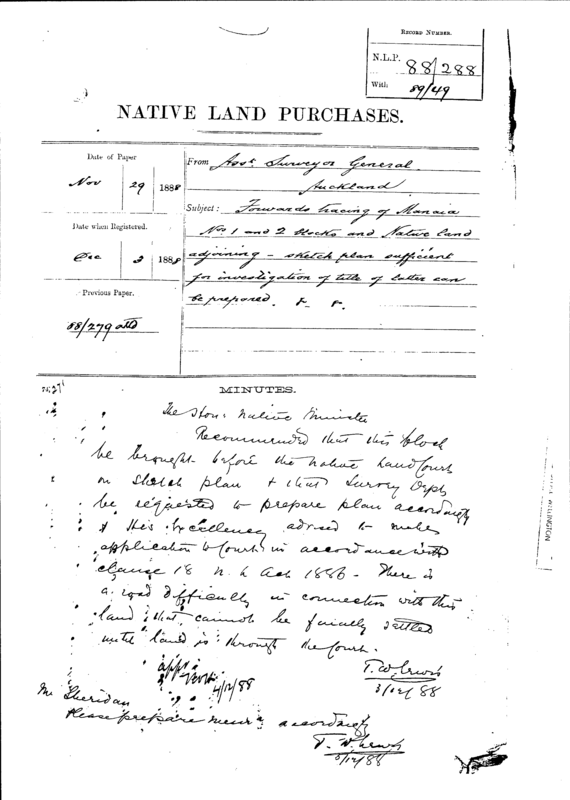 RECORD NUMBER.
N.L.P. 88/288
With 89/49
NATIVE LAND PURCHASES.
Date of Paper
Nov 29 1888
Date when Registered.
Dec 3 1888
Previous Paper.
88/279 attd
From Asst Surveyor General
Auckland
Subject: Forwards tracing of Manaia
Nos 1 and 2 blocks and Native land
adjoining - sketch plan sufficient
for investigation of title of latter can
be prepared.
MINUTES.
The Hon: Native Minister
Recommended that this block
be brought before the Native Land Court
on sketch plan & that Survey Dept
be requested to prepare plan accordingly
& His Excellency advised to make
application to Court in accordance with
clause 18 N. L Act 1886 - There is
a road difficulty in connection with this
land that cannot be fairly settled
until land is through the Court.
T. W. Lewis
3/12/88
4/12/88
Mr Sheridan
Please prepare memr accordingly
T. W. Lewis
5/12/88